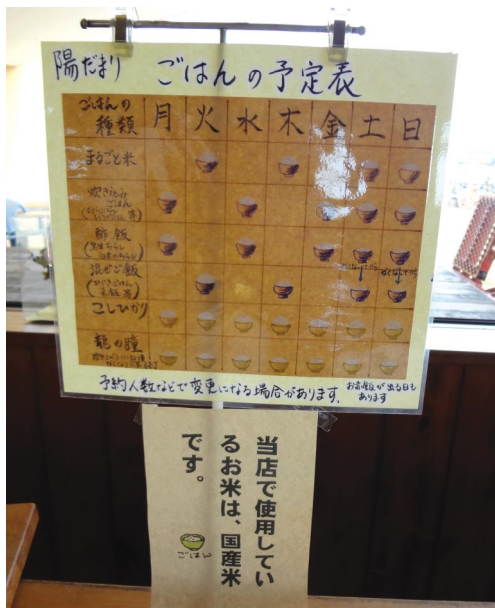 陽だまり ごはんの予定表
ごはんの種類 月 火 水 木 金 土 日
まるごと米
炊き込みごはん
酢飯
混ぜご飯
(ひじきごはん
こしひかり
龍の瞳
予約人数などで変更になる場合があります。
お赤飯が出る日もあります
当店で使用してい
るお米は、国産米
です。
ごはん